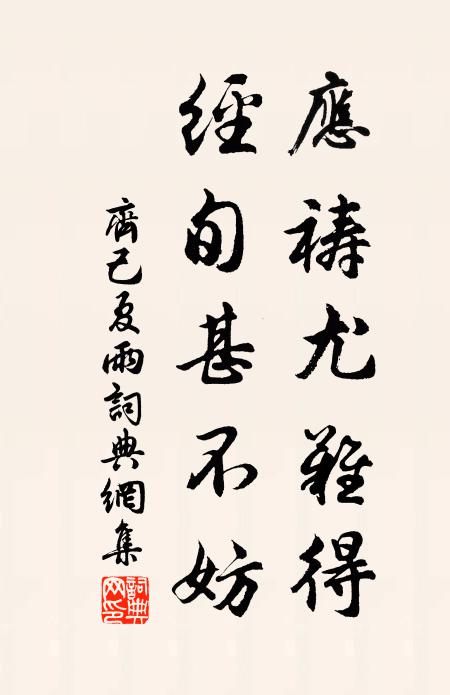 應禱尤難得
經旬甚不妨
齊己夏雨詞典網集
詞典网印